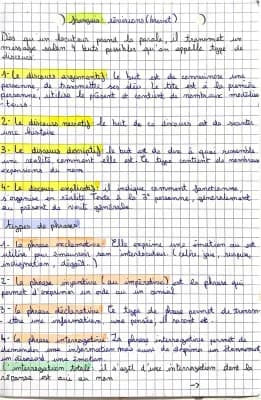 français révisions (brevet)
Dès qu'un locuteur prend la parole, il transmet un
message selon 4 buts possibles qu'on appelle type de
discours
1- Le discours argumentatif: le but est de convaincre une
personne, de transmettre ses idées. Le texte est à la première
personne, utilise le présent et contient de nombreux
2- Le discours narratif: le but de ce discours est de raconter
une histoire
3- Le discours descriptif: le but est de dire à quoi ressemble
une réalité comment elle est. Ce type contient de nombreux
expansions du nom
4- Le discours explicatif: il indique comment fonctionne,
s'organise en réalité. Texte à la 3° personne, généralement
au présent de vérité générale.
types de phrases
1- la phrase exclamative: Elle exprime une émotion ou est
utilisée pour émouvoir son interlocuteur (colère, joie, surprise,
indignation, dégoût...)
2- La phrase injonctive (ou impérative): est la phrase qui
permet d'exprimer un ordre ou un conseil
3- la phrase déclarative: Ce type de phrase permet de transm-
ettre une information, une pensée, il raconte et.
4- la phrase interrogative: La phrase interrogative permet de
demander une information mais aussi de exprimer un étonnement
un désaccord une émotion
l'interrogation totale: il s'agit d'une interrogation dont la
réponse est oui ou non
→